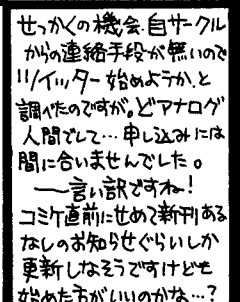 せっかくの機会、自サークル
からの連絡手段が無いので
ツイッター始めようか、と
調べたのですが。どアナログ
人間でして…申し込みには
間に合いませんでした。
――言い訳ですね!
コミケ直前にせめて新刊ある
なしのお知らせぐらいしか
更新しなそうですけども
始めた方がいいのかな…?